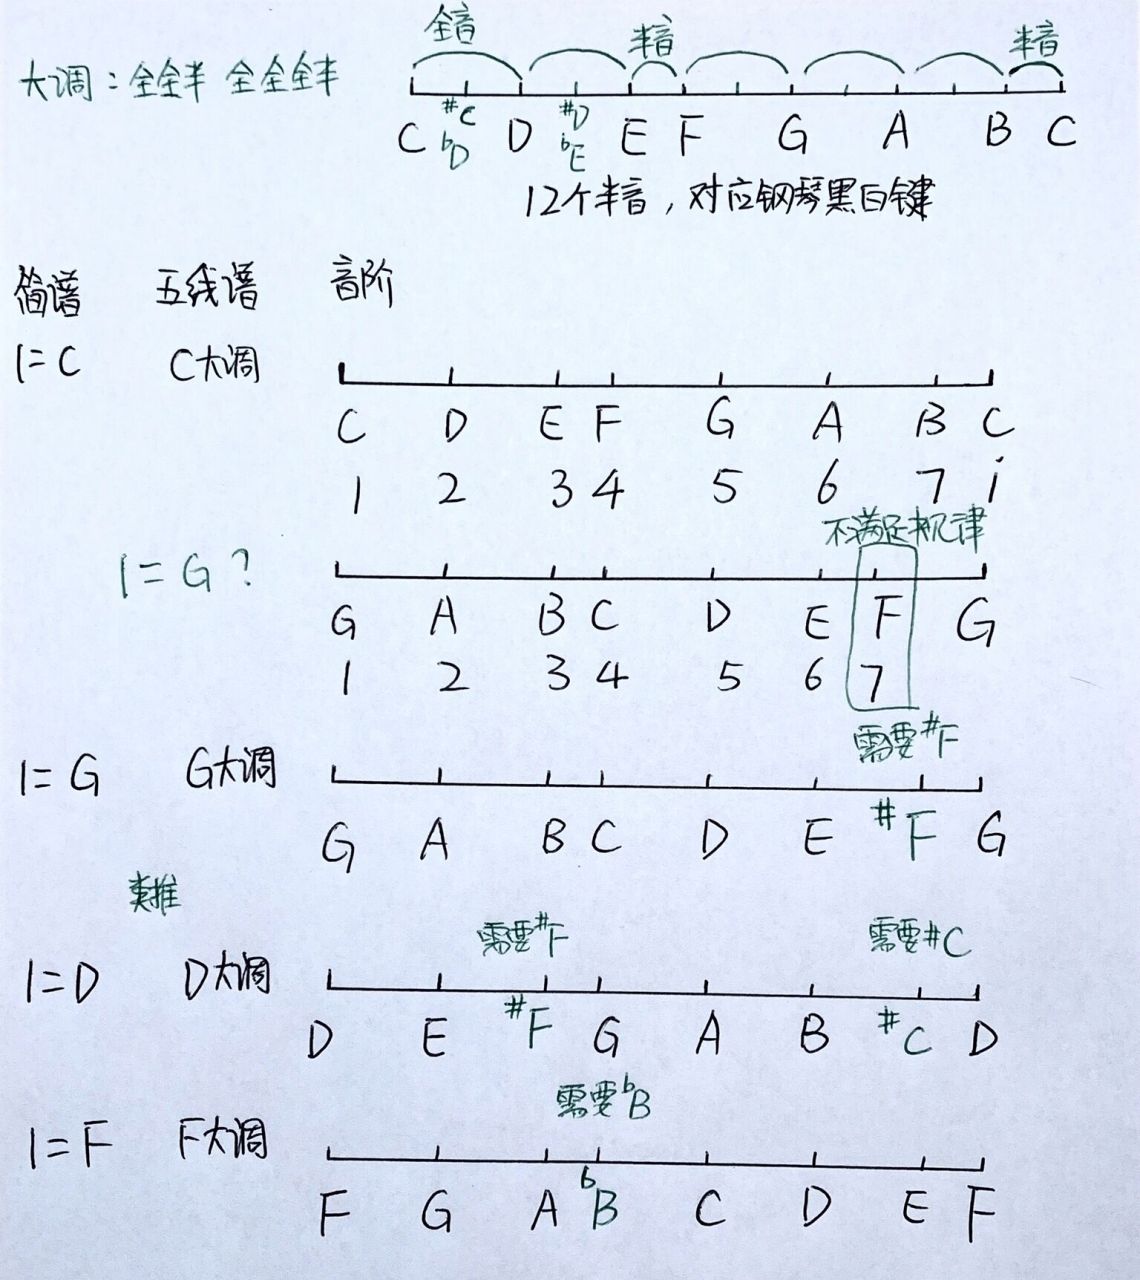 全音 半音 半音
大调：全全半 全全全半
#C #D
C bD D bE E F G A B C
12个半音，对应钢琴黑白键
简谱 五线谱 音阶
1=C C大调
C D E F G A B C
1 2 3 4 5 6 7 i
不满足规律
1=G？
G A B C D E F G
1 2 3 4 5 6 7
需要#F
1=G G大调
G A B C D E #F G
类推
需要#F 需要#C
1=D D大调
D E #F G A B #C D
需要bB
1=F F大调
F G A bB C D E F